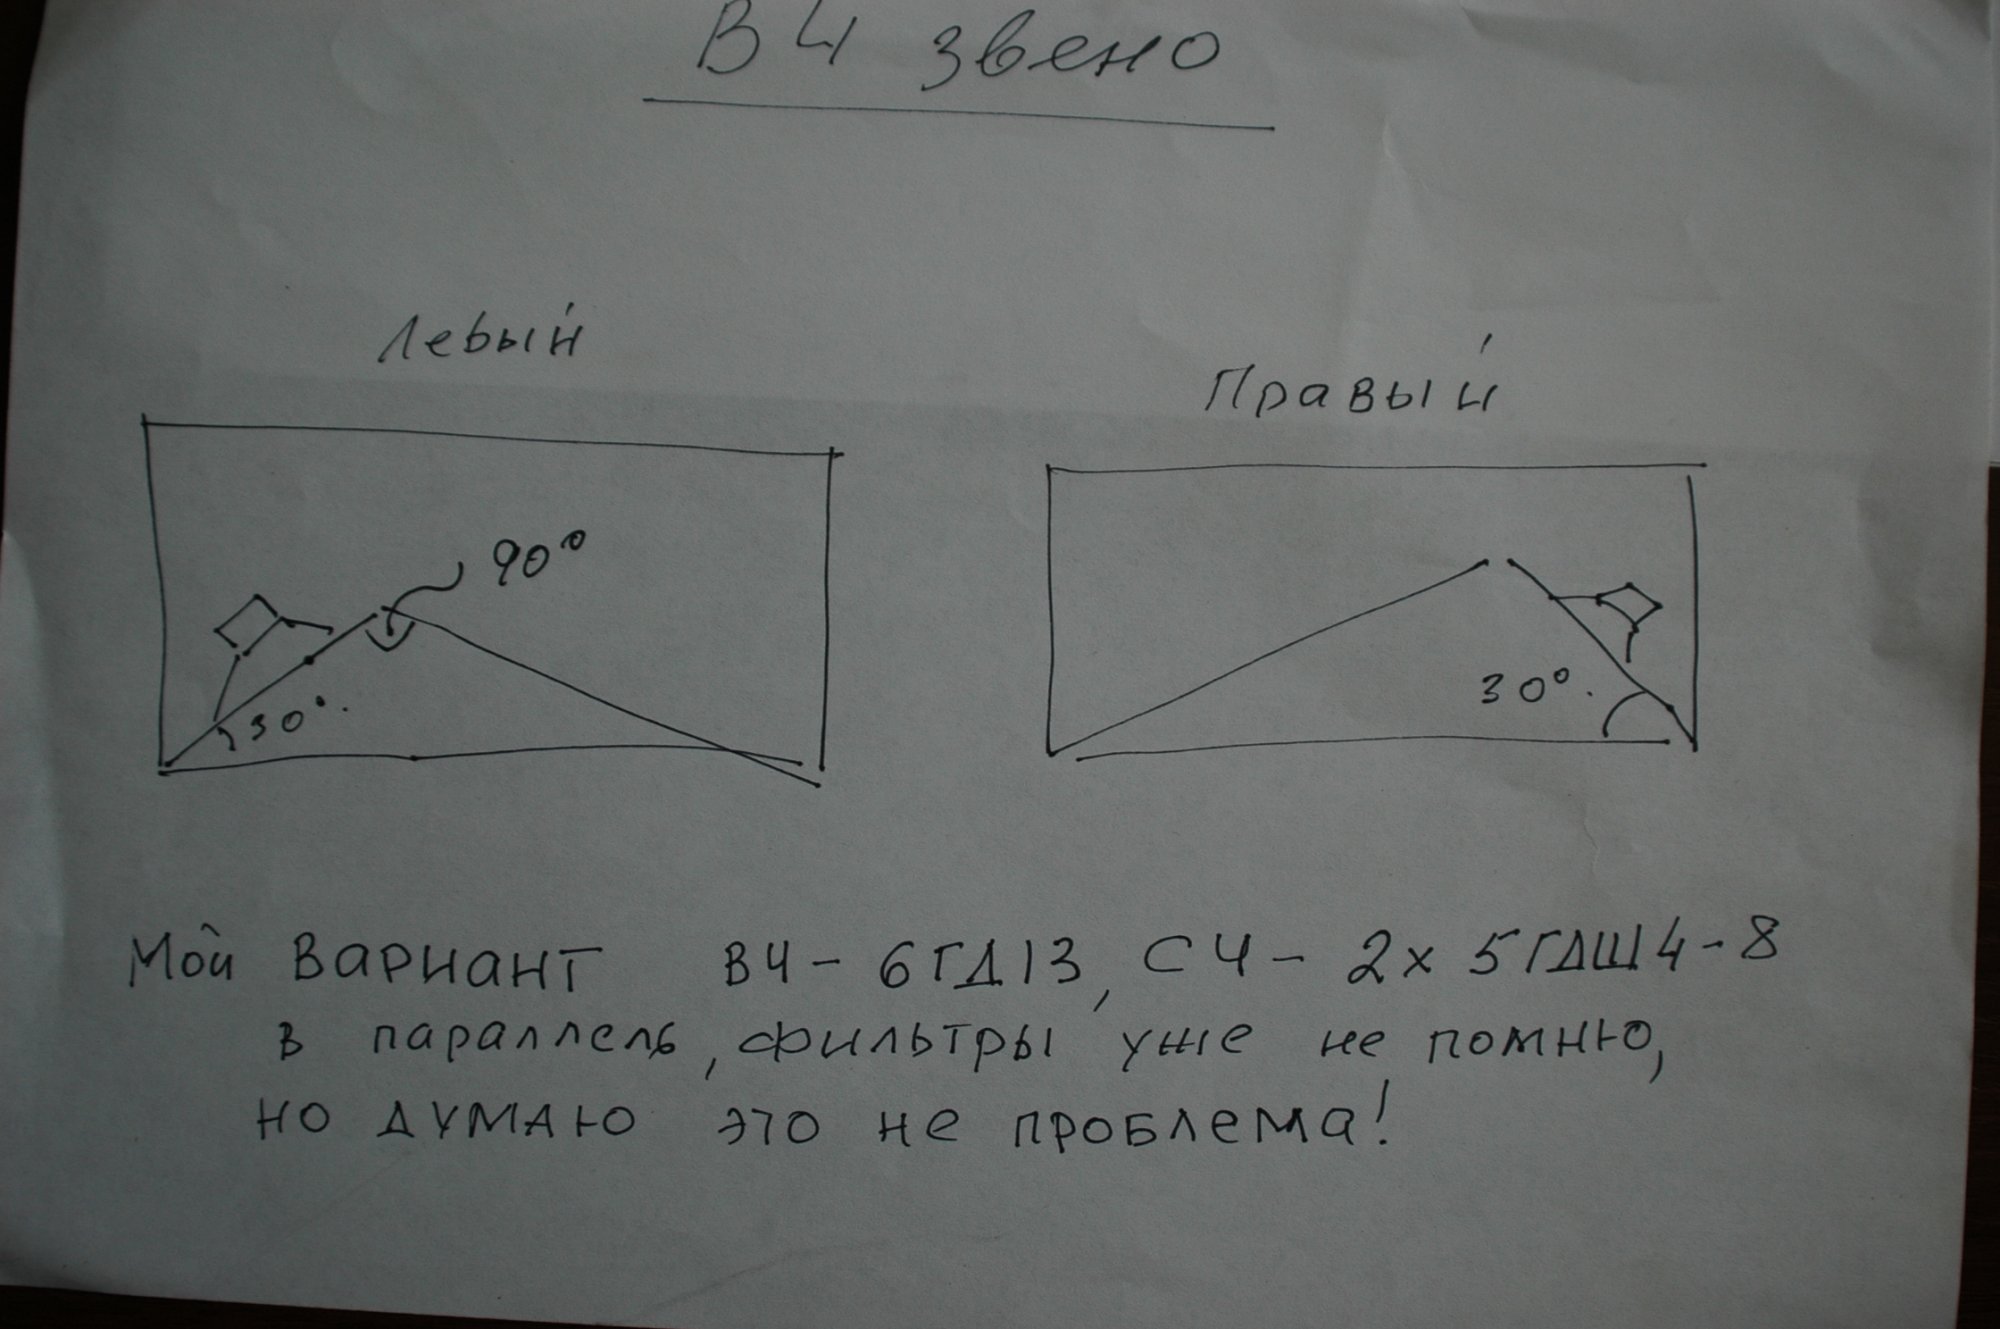 ВЧ звено
Левый
Правый
90°
30°.
30°.
Мой вариант ВЧ - 6ГД13, СЧ - 2х 5ГДШ4-8
в параллель, фильтры уже не помню,
но думаю это не проблема!